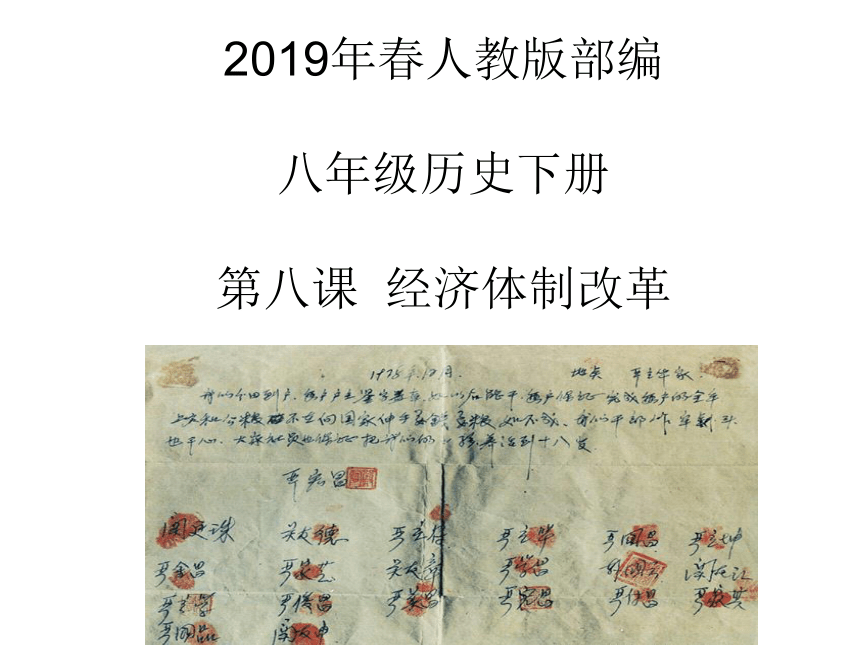 2019年春人教版部编
八年级历史下册
第八课 经济体制改革
1978年12月. 地点 严立华家.
我们分田到户,每户户主签字盖章,如以后能干,每户保证完成每户的全年
上交和公粮.不在向国家伸手要钱要粮.如不成,我们干部作牢刹头
也干心,大家社员也保证把我们的小孩养活到十八岁.
严宏昌
关友德 严立符 严立华 严国昌 严立坤
严金昌 严家芝 关友章 严学昌 韩国云 关友江
严立学 严俊昌 严美昌 严宏昌 严付昌 严家其
严国品 关友申